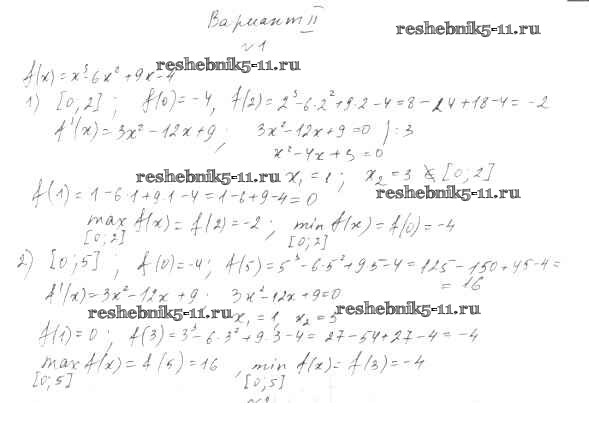 Вариант II
reshebnik5-11.ru
№1
reshebnik5-11.ru
f(x)=x³-6x²+9x-4
1) [0,2]; f(0)=-4, f(2)=2³-6·2²+9·2-4=8-24+18-4=-2
f'(x)=3x²-12x+9; 3x²-12x+9=0 ):3
x²-4x+3=0
reshebnik5-11.ru x₁=1; x₂=3 ∉ [0,2]
reshebnik5-11.ru
f(1)=1-6·1+9·1-4=1-6+9-4=0
max f(x)=f(2)=-2; min f(x)=f(0)=-4
[0;2] [0;2]
2) [0;5]; f(0)=-4; f(5)=5³-6·5²+9·5-4=125-150+45-4=
=16
f'(x)=3x²-12x+9; 3x²-12x+9=0
reshebnik5-11.ru x₁=1, x₂=3 reshebnik5-11.ru
f(1)=0; f(3)=3³-6·3²+9·3-4=27-54+27-4=-4
max f(x)=f(5)=16, min f(x)=f(3)=-4
[0;5] [0;5]